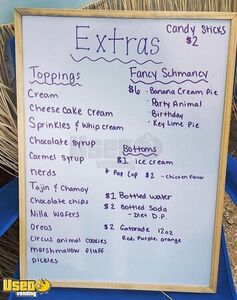 Extras
Candy Sticks
$2
Toppings
Cream
Cheese Cake Cream
Sprinkles & Whip cream
Chocolate syrup
Carmel syrup
nerds
Tajin & Chamoy
Chocolate chips
Nilla Wafers
Oreos
Circus animal cookies
Marshmallow fluff
pickles
Fancy Schmancy
$6 · Banana Cream Pie
· Party Animal
· Birthday
· Key Lime Pie
Bottoms
$1 Ice cream
* Pup Cup $2 - chicken flavor
$1 Bottled water
$2 Bottled Soda
- Diet D.P.
$2 Gatorade 12oz
Red, Purple, orange
Used
vending